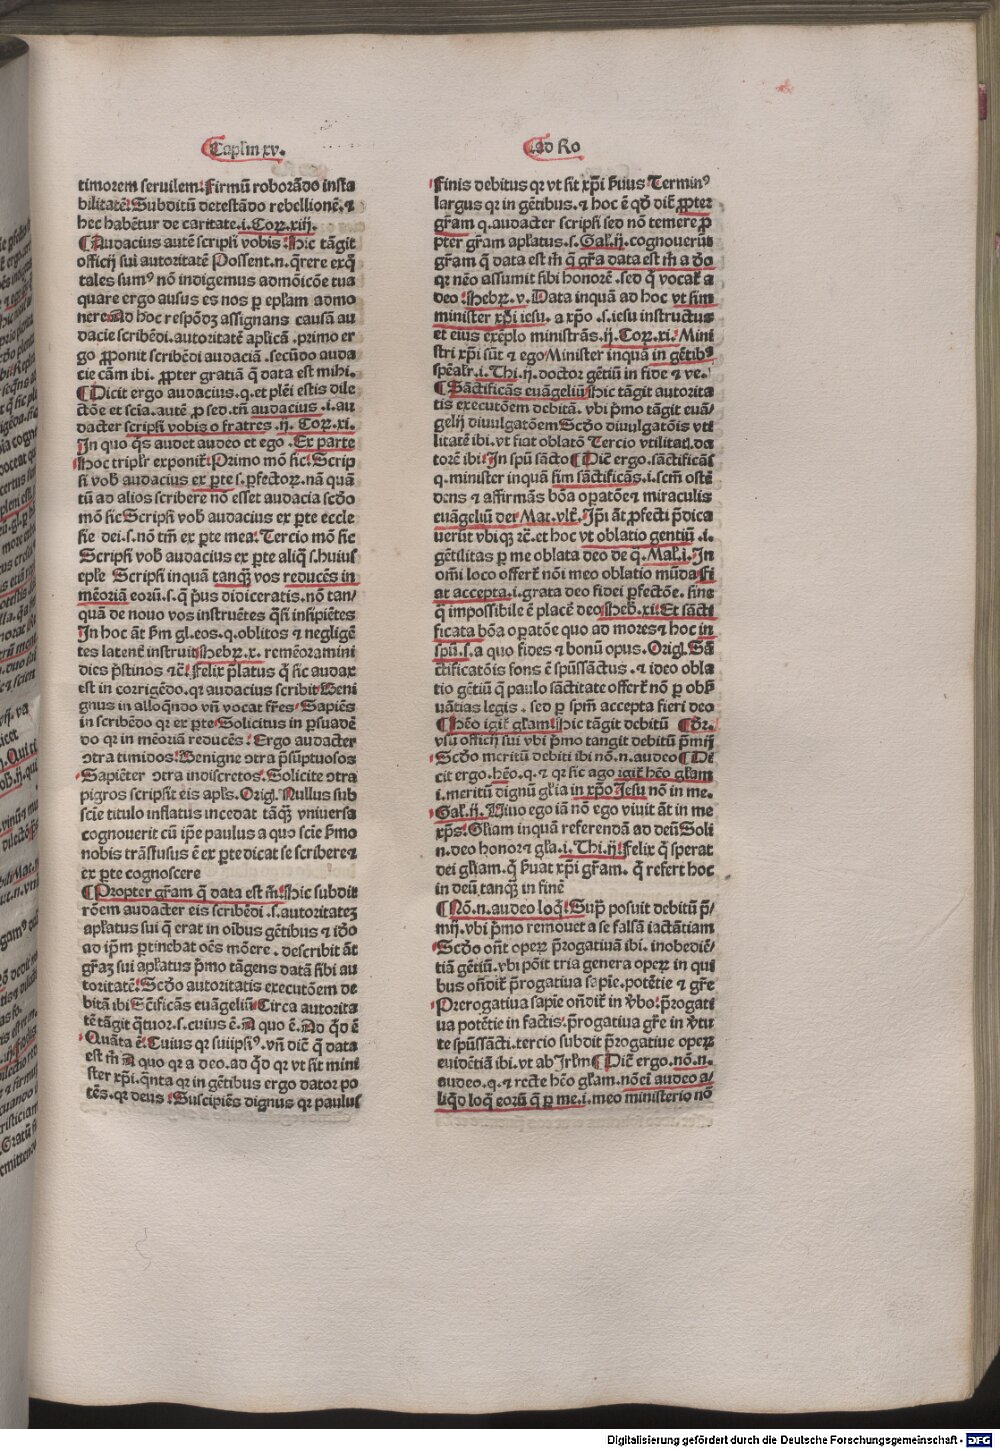 Caplm xv.
timorem seruilem. Firmū roborādo insta
bilitatē. Subditū detestādo rebellionē. ⁊
hec habētur de caritate. i. Coꝝ. xiij.
Audacius autē scripsi vobis. Hic tāgit
officij sui autoritatē Possent. n. q̄rere exq̄
tales sumꝰ nō indigemus admōicōe tua
quare ergo ausus es nos ꝑ epłam admo
nere. Ad hoc respōdꝫ assignans causā au
dacie scribēdi. autoritatē aplicā. primo er
go ꝓponit scribēdi audaciā. secūdo auda
cie cām ibi. ꝓpter gratiā q̄ data est mihi.
Dicit ergo audacius. q. et plēi estis dile
ctōe et scīa. autē ꝓ sed. tn̄ audacius .i. au
dacter scripsi vobis o fratres .ij. Coꝝ. xi.
In quo q̄s audet audeo et ego . Ex parte
hoc triplr̄ exponit̄. Primo mō sic. Scrip
si vob̄ audacius ex ꝑte s. ꝑfectoꝝ. nā quā
tū ad alios scribere nō esset audacia scd̄o
mō sic Scripsi vob̄ audacius ex ꝑte eccle
sie dei. s. nō tm̄ ex ꝑte mea. Tercio mō sic
Scripsi vob̄ audacius ex ꝑte aliq̄ s. huius
eple Scripsi inquā tanq̄ꝫ vos reducēs in
mēoriā eorū. s. q̄ pꝰus didiceratis. nō tan/
quā de nouo vos instruētes q̄si insipiētes
In hoc āt ꝑm gl. eos. q. oblitos ⁊ negligē
tes latent̄ instruit. Hebꝝ. x. rememōramini
dies pꝛstinos ⁊cē. Felix p̄latus q̄ sic audax
est in corrigēdo. qꝛ audacius scribit. Beni
gnus in alloqn̄do vn̄ vocat fr̄es. Sapiēs
in scribēdo qꝛ ex ꝑte. Solicitus in ꝑsuadē
do qꝛ in mēoriā reducēs. Ergo audacter
ↄtra timidos. Benigne ↄtra p̄sūptuosos
Sapiēter ↄtra indiscretos. Solicite ↄtra
pigros scripsit eis apl̄s. Origi. Nullus sub
scīe titulo inflatus incedat tāq̄ꝫ vniuersa
cognouerit cū ip̄e paulus a quo scīe p̄mo
nobis trāsfusus ē ex ꝑte dicat se scribere ⁊
ex ꝑte cognoscere
Propter gr̄am q̄ data est m̄. Hic subdit
rōem audacter eis scribēdi .s. autoritateꝫ
apłatus sui q̄ erat in oībus gētibus ⁊ id̄o
ad ip̄m ꝑtinebat oēs mōere . describit āt
gr̄aꝫ sui apłatus p̄mo tāgens datā sibi au
toritatē. Scd̄o autoritatis executōem de
bitā ibi Sc̄ificās euāgeliū. Circa autorita
tē tāgit q̄tuor. s. cuius ē. A quo ē. Ad q̄d ē
Quāta ē. Cuius qꝛ suiipsiꝰ. vn̄ dic̄ q̄ data
est m̄ A quo qꝛ a deo. ad q̄d qꝛ vt sit mini
ster xp̄i. q̄nta qꝛ in gētibus ergo dator po
tēs. qꝛ deus. Suscipiēs dignus qꝛ paulus
Ad Ro
Finis debitus qꝛ vt sit xp̄i s̄uus Terminꝰ
largus qꝛ in gētibus. ⁊ hoc ē qd̄ dic̄ ꝓpter
gr̄am q. audacter scripsi sed nō temere ꝓ
pter gr̄am apłatus. s. Gal̄. ij. cognouerūt
gr̄am q̄ data est m̄ q̄ gr̄a data est m̄ a d̄o
qꝛ nēo assumit sibi honorē. sed q̄ vocat̄ a
deo. Hebꝝ. v. Data inquā ad hoc vt sim
minister xp̄i iesu. a xp̄o .s. iesu instructus
et eius exēplo ministrās. ij. Coꝝ. xi. Mini
stri xp̄i sūt ⁊ ego Minister inquā in gētibꝰ
sp̄ealr̄. i. Thi. ij. doctor gētiū in fide ⁊ ve.
Sāctificās euāgeliū Hic tāgit autorita
tis executōem debitā. vbi p̄mo tāgit euā/
gelij diuulgatōem Scd̄o diuulgatōis vti
litatē ibi. vt fiat oblatō Tercio vtilitati. da
torē ibi. In spū sācto Dic̄ ergo. sāctificās
q. minister inquā sim sāctificās. i. scm̄ ostē
dens ⁊ affirmās bōa oꝑatōe ⁊ miraculis
euāgeliū dei. Mat. vlt̄. Ip̄i āt ꝓfecti p̄dica
uerūt vbiqꝫ ⁊c̄. et hoc vt oblatio gentiū .i.
gētilitas ꝑ me oblata deo de q̄. Mal̄. i. In
om̄i loco offert̄ nōi meo oblatio mūda. Fi
at accepta. i. grata deo fidei ꝑfectōe. sine
q̄ impossibile ē placē̄ deo Heb̄. xi. Et sācti
ficata bōa oꝑatōe quo ad mores ⁊ hoc in
spū. s. a quo fides ⁊ bonū opus. Origi. Sā
ctificatōis fons ē spūssāctus. ⁊ ideo obla
tio gētiū q̄ paulo sāctitate offert̄ nō ꝑ obs̄
uātias legis . sed ꝑ spm̄ accepta fieri deo
Hēo igit̄ gl̄am. Hic tāgit debitū
vsū officij sui vbi p̄mo tangit debitū p̄mij
Scd̄o meritū debiti ibi nō. n. audeo Di
cit ergo. hēo. q. ⁊ qꝛ sic ago igit̄ hēo gl̄am
.i. meritū dignū gl̄ia in xp̄o Iesu nō in me.
Gal̄. ij. Viuo ego iā nō ego viuit āt in me
xp̄s. Gl̄iam inquā referendā ad deū. Soli
n. deo honor ⁊ gl̄a. i. Thi. ij. Felix q̄ sperat
dei gl̄iam. q̄ s̄uat xp̄i gr̄am. q̄ refert hoc
in deū tanq̄ꝫ in finē
Nō. n. audeo loq̄. Sup̄ posuit debitū p̄/
mij. vbi p̄mo remouet a se falsā iactātiam
Scd̄o oñt opeꝝ p̄rogatiuā ibi. inobediē/
tiā gētiū. vbi pōit tria genera opeꝝ in qui
bus on̄dit̄ p̄rogatiua sapīe. potētie ⁊ gr̄e
Prerogatiua sapīe on̄dit̄ in v̄bo. p̄rogati
ua potētie in factis. p̄rogatiua gr̄e in v̄tu
te spūssācti. tercio subdit p̄rogatiue opeꝝ
euidētiā ibi. vt ab Irl̄m Dic̄ ergo. nō. n.
audeo. q. ⁊ recte hēo gl̄am. nō eī audeo a/
liq̄d loq̄ eorū q̄ ꝑ me. i. meo ministerio nō
Digitalisierung gefördert durch die Deutsche Forschungsgemeinschaft - DFG